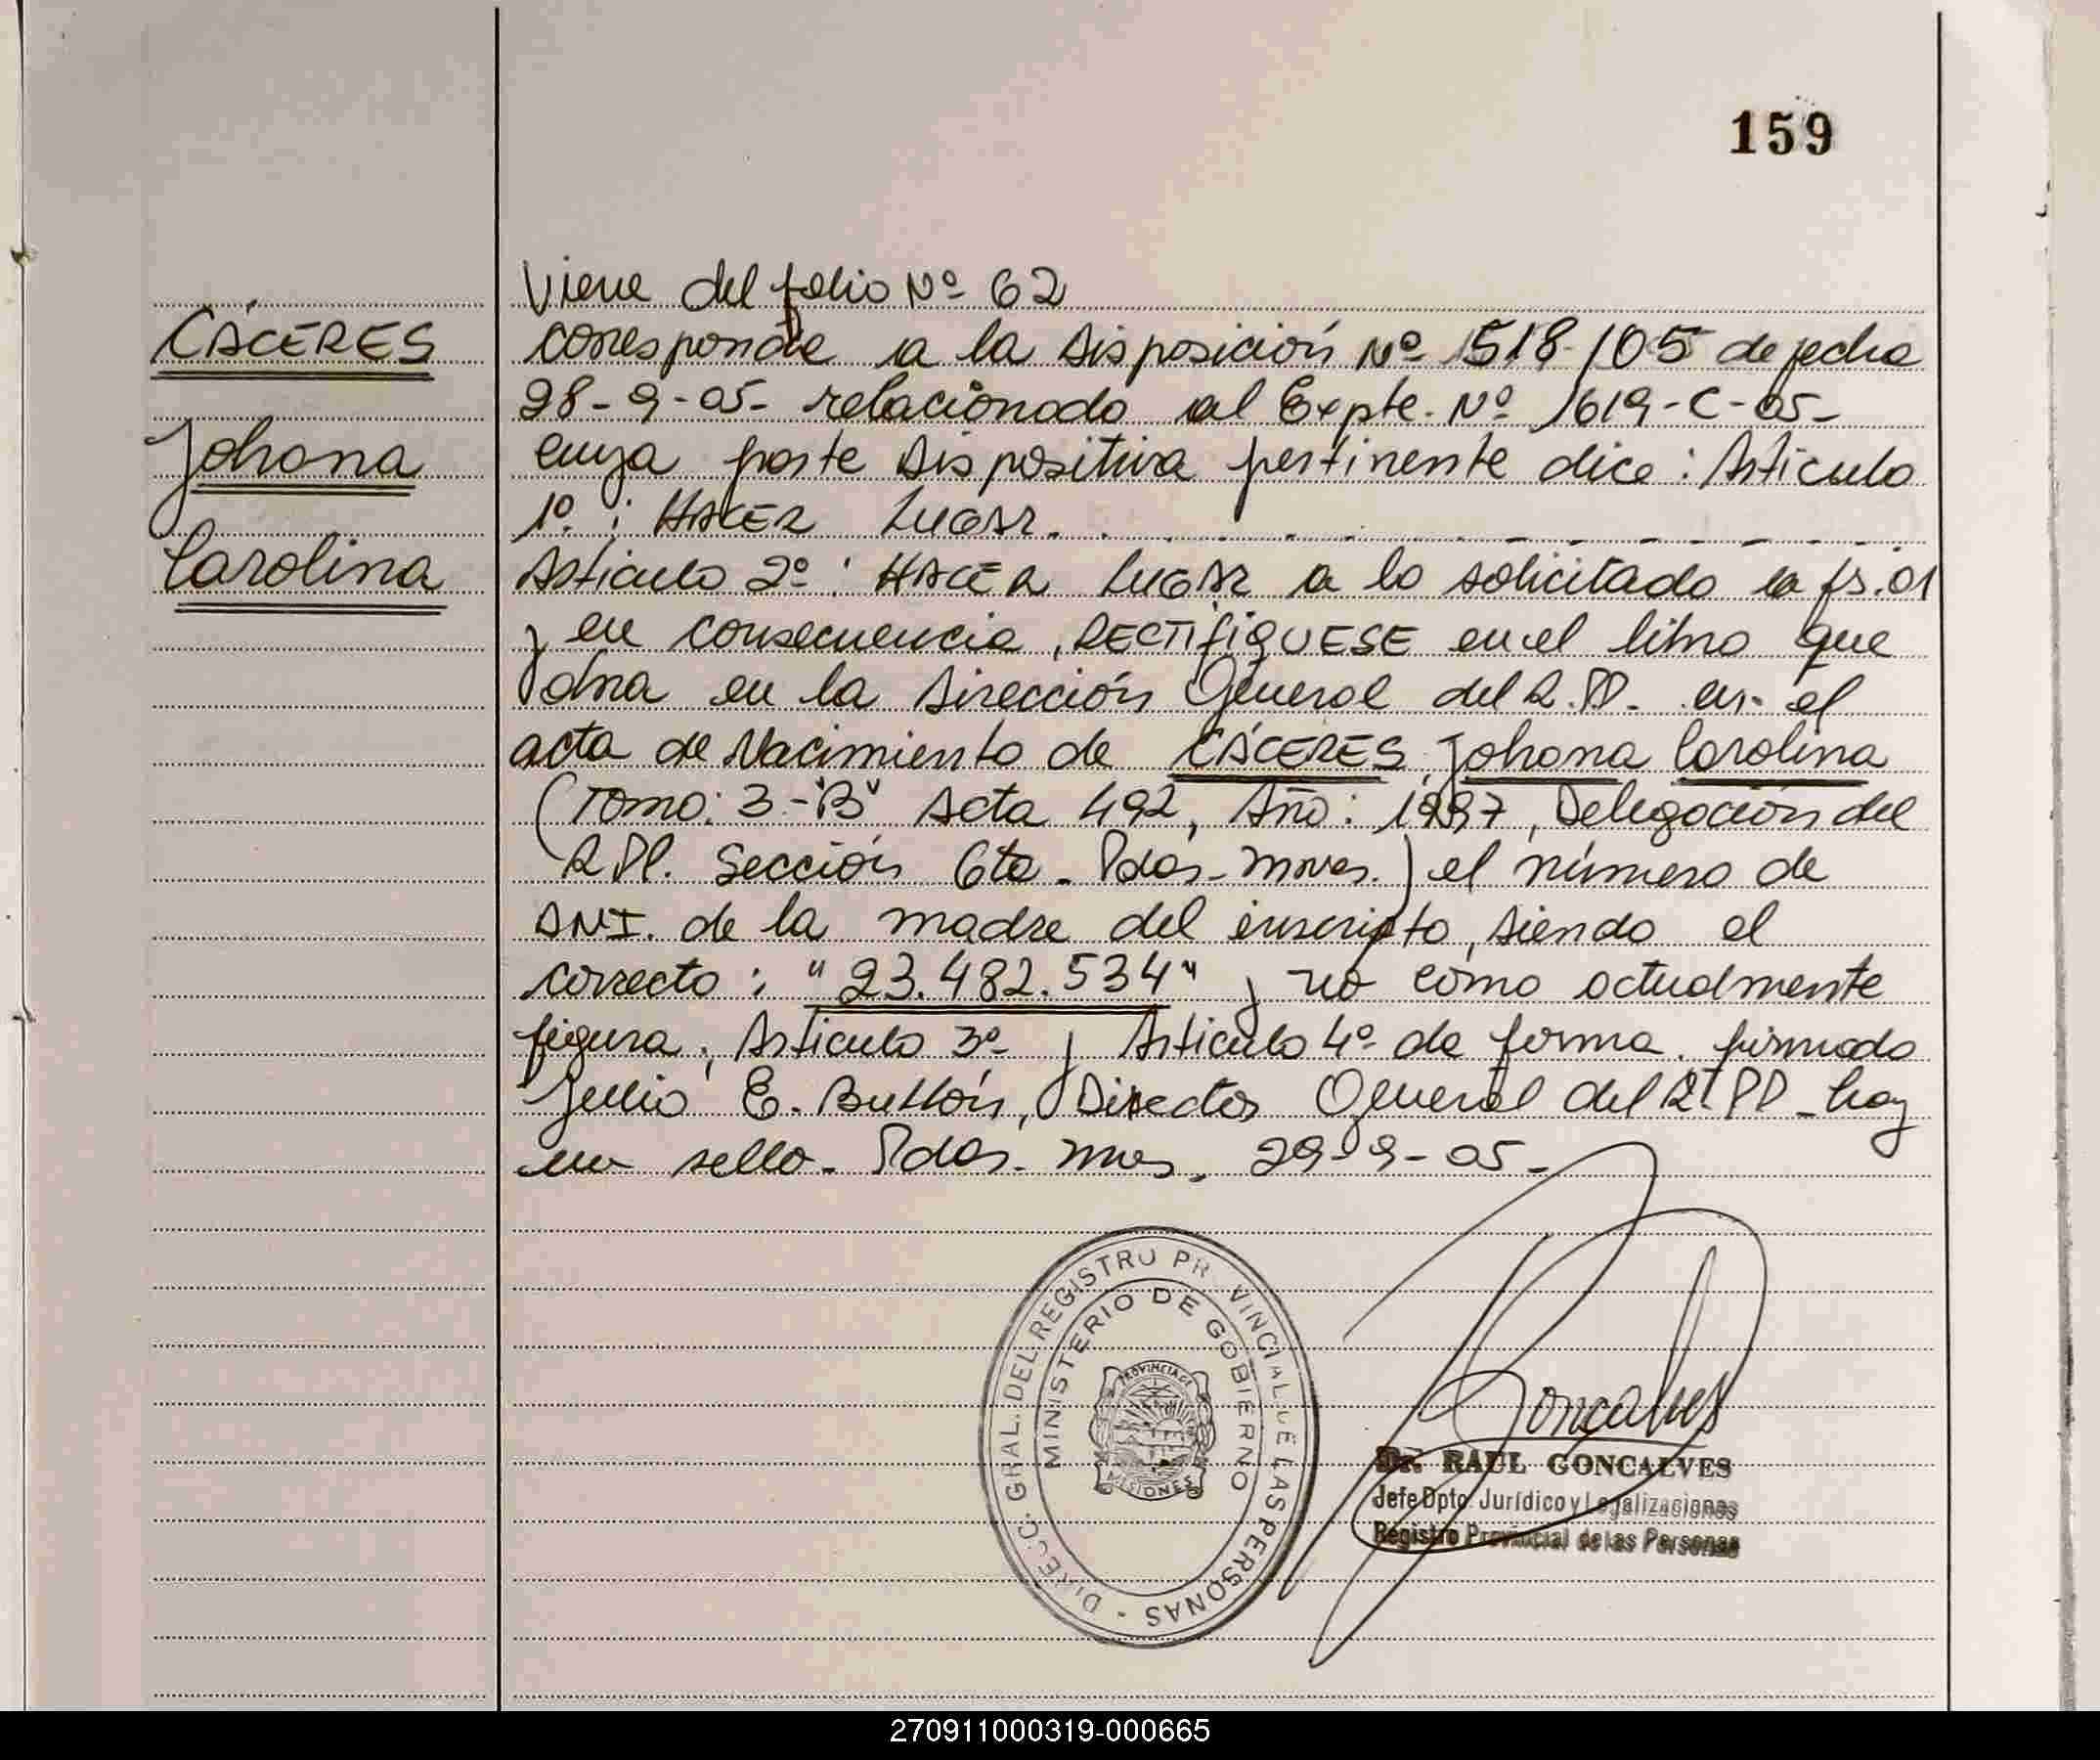 159
Viene del folio Nº 62
CÁCERES
Johana
Carolina
corresponde a la Disposición Nº 1518/05 de fecha
28-9-05- relacionado al Expte. Nº 1619-C-05-
cuya parte dispositiva pertinente dice: Articulo
1º: HACER LUGAR.
Articulo 2º: HACER LUGAR a lo solicitado a fs. 01
y en consecuencia, RECTIFIQUESE en el libro que
obra en la Dirección General del R.P.P. en el
acta de Nacimiento de CÁCERES, Johana Carolina
(Tomo: 3-"B" Acta 492, Año: 1997, Delegación del
R.P.P. Sección 6ta. Pdas-Mnes.) el número de
DNI. de la madre del inscripto, siendo el
correcto: "23.482.534" y no como actualmente
figura, Articulo 3º y Articulo 4º de forma. firmado
Julio E. , Director General del R.P.P_ hay
un sello. Pdas. Mnes, 29-9-05-
DIRECC. GRAL. DEL REGISTRO PROVINCIAL DE LAS PERSONAS -
MINISTERIO DE GOBIERNO
PROVINCIA DE
MISIONES
Goncalves
Dr. RAUL GONCALVES
Jefe Dpto. Jurídico y Legalizaciones
Registro Provincial de las Personas
270911000319-000665